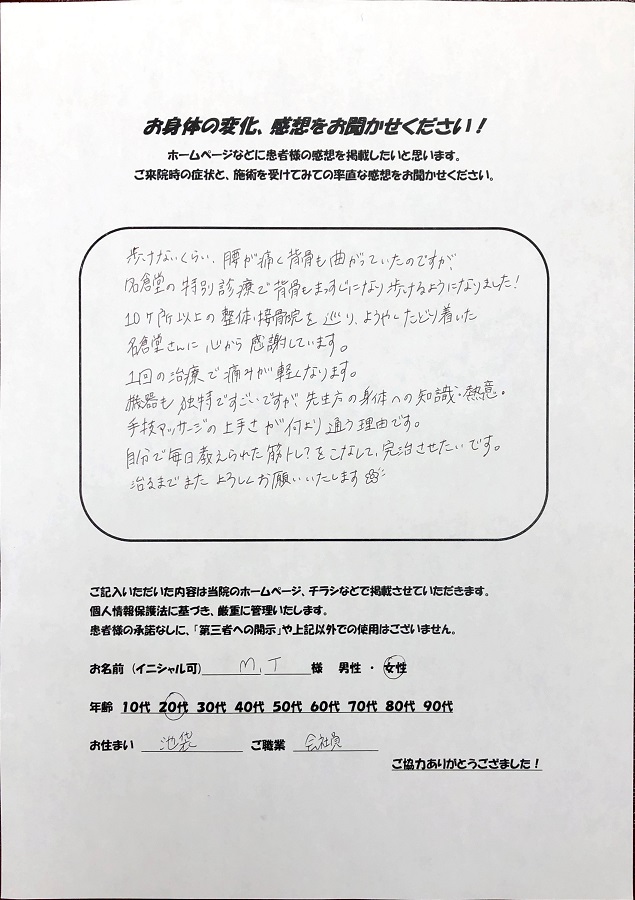 お身体の変化、感想をお聞かせください！
ホームページなどに患者様の感想を掲載したいと思います。
ご来院時の症状と、施術を受けてみての率直な感想をお聞かせください。
歩けないくらい、腰が痛く背骨も曲がっていたのですが、
名倉堂の特別診療で背骨もまっすぐになり歩けるようになりました！
10ヶ所以上の整体・接骨院を巡り、ようやくたどり着いた
名倉堂さんに心から感謝しています。
1回の治療で痛みが軽くなります。
機器も独特ですごいですが、先生方の身体への知識・熱意・
手技マッサージの上手さが何より通う理由です。
自分で毎日教えられた筋トレ？をこなして、完治させたいです。
治るまでまたよろしくお願いいたします
ご記入いただいた内容は当院のホームページ、チラシなどで掲載させていただきます。
個人情報保護法に基づき、厳重に管理いたします。
患者様の承諾なしに、「第三者への開示」や上記以外での使用はございません。
お名前（イニシャル可） M.T 様 男性 ・ 女性
年齢 10代 20代 30代 40代 50代 60代 70代 80代 90代
お住まい 池袋 ご職業 会社員
ご協力ありがとうござました！